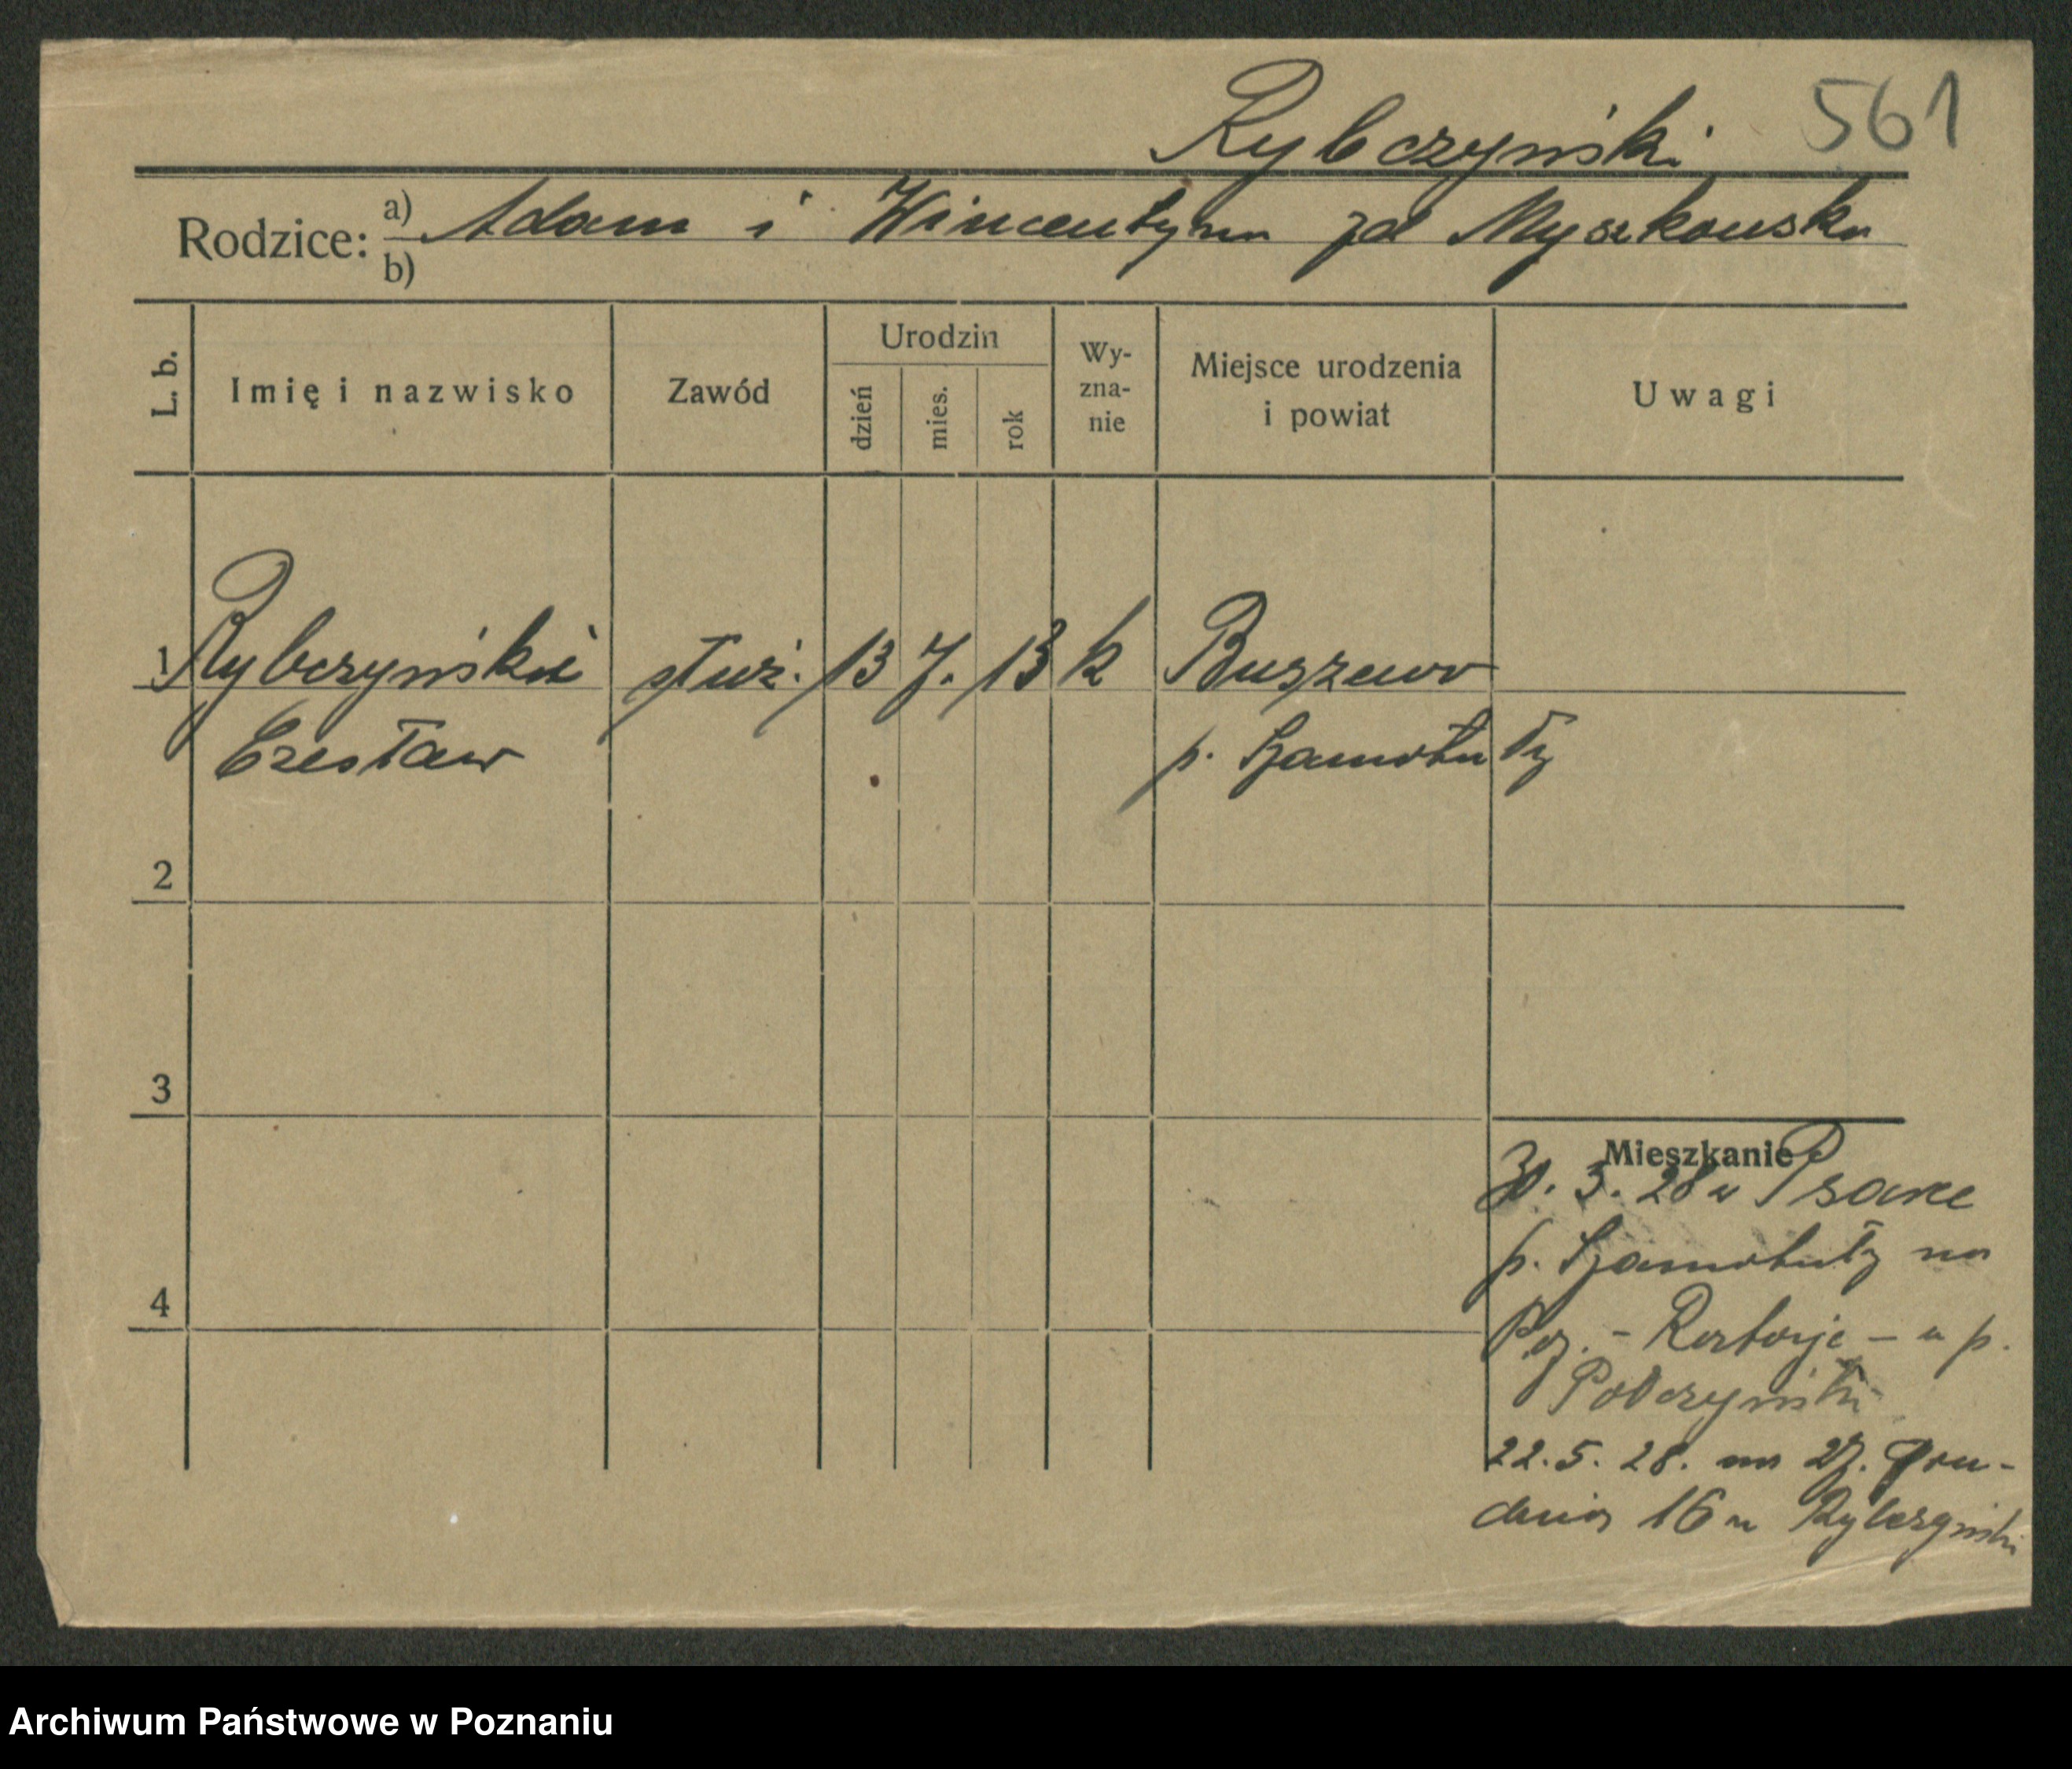 Rybczyński 561
Rodzice: a) Adam i Wincentyna zd Myszkowska
b)
L. b. Imię i nazwisko Zawód Urodzin dzień mies. rok Wy-zna-nie Miejsce urodzenia i powiat Uwagi
1 Rybczyński służ. 13 7. 13 k Buszewo
Czesław p. Szamotuły
2
3
4
Mieszkanie
30. 3. 28 z Psarce
p. Szamotuły na
Poz. - - u p.
22.5.28. na 27. Gru-
dnia 16 u Rybczyński
Archiwum Państwowe w Poznaniu